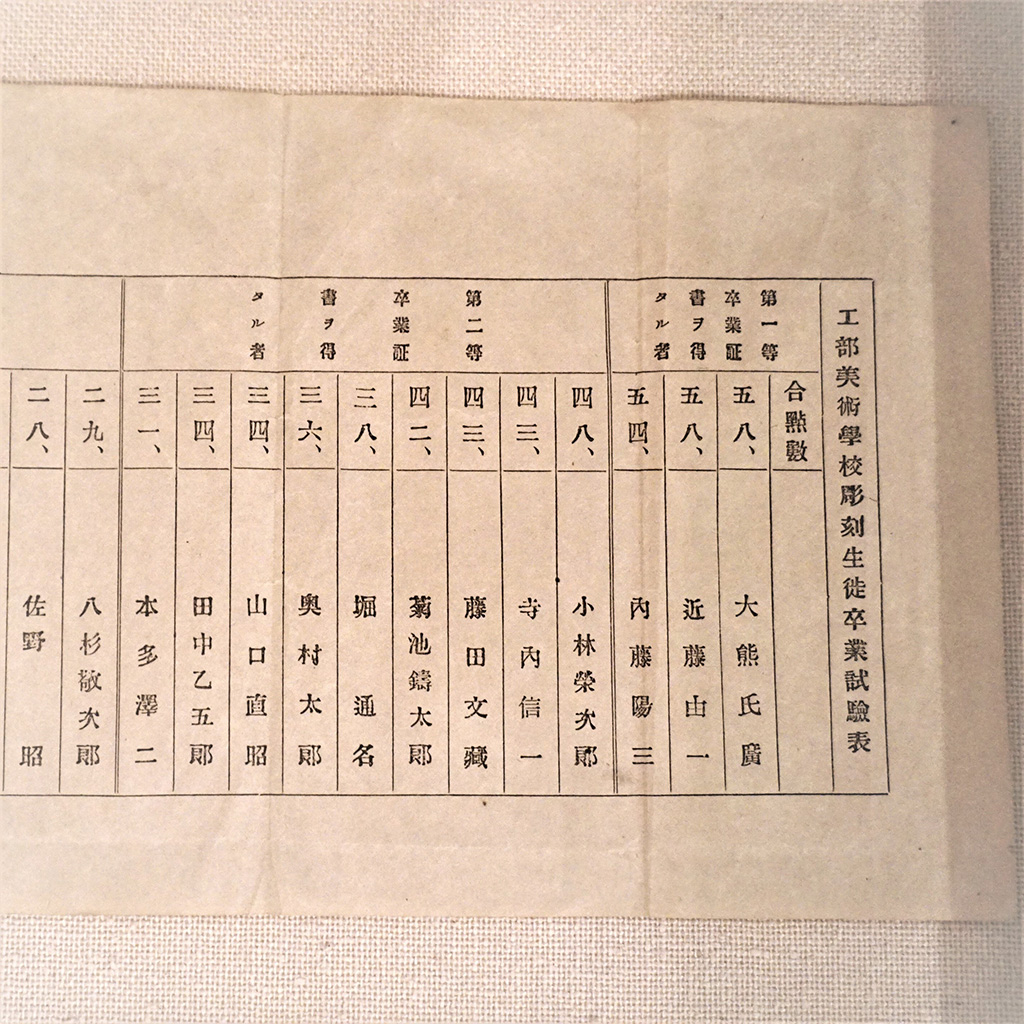 工部美術學校彫刻生徒卒業試驗表
合點數
第一等
卒業証
書ヲ得
タル者
五八、 大熊氏廣
五八、 近藤由一
五四、 內藤陽三
第二等
卒業証
書ヲ得
タル者
四八、 小林榮次郞
四三、 寺內信一
四三、 藤田文藏
四二、 菊池鑄太郞
三八、 堀通名
三六、 奧村太郞
三四、 山口直昭
三四、 田中乙五郞
三一、 本多澤二
二九、 八杉敬次郞
二八、 佐野昭